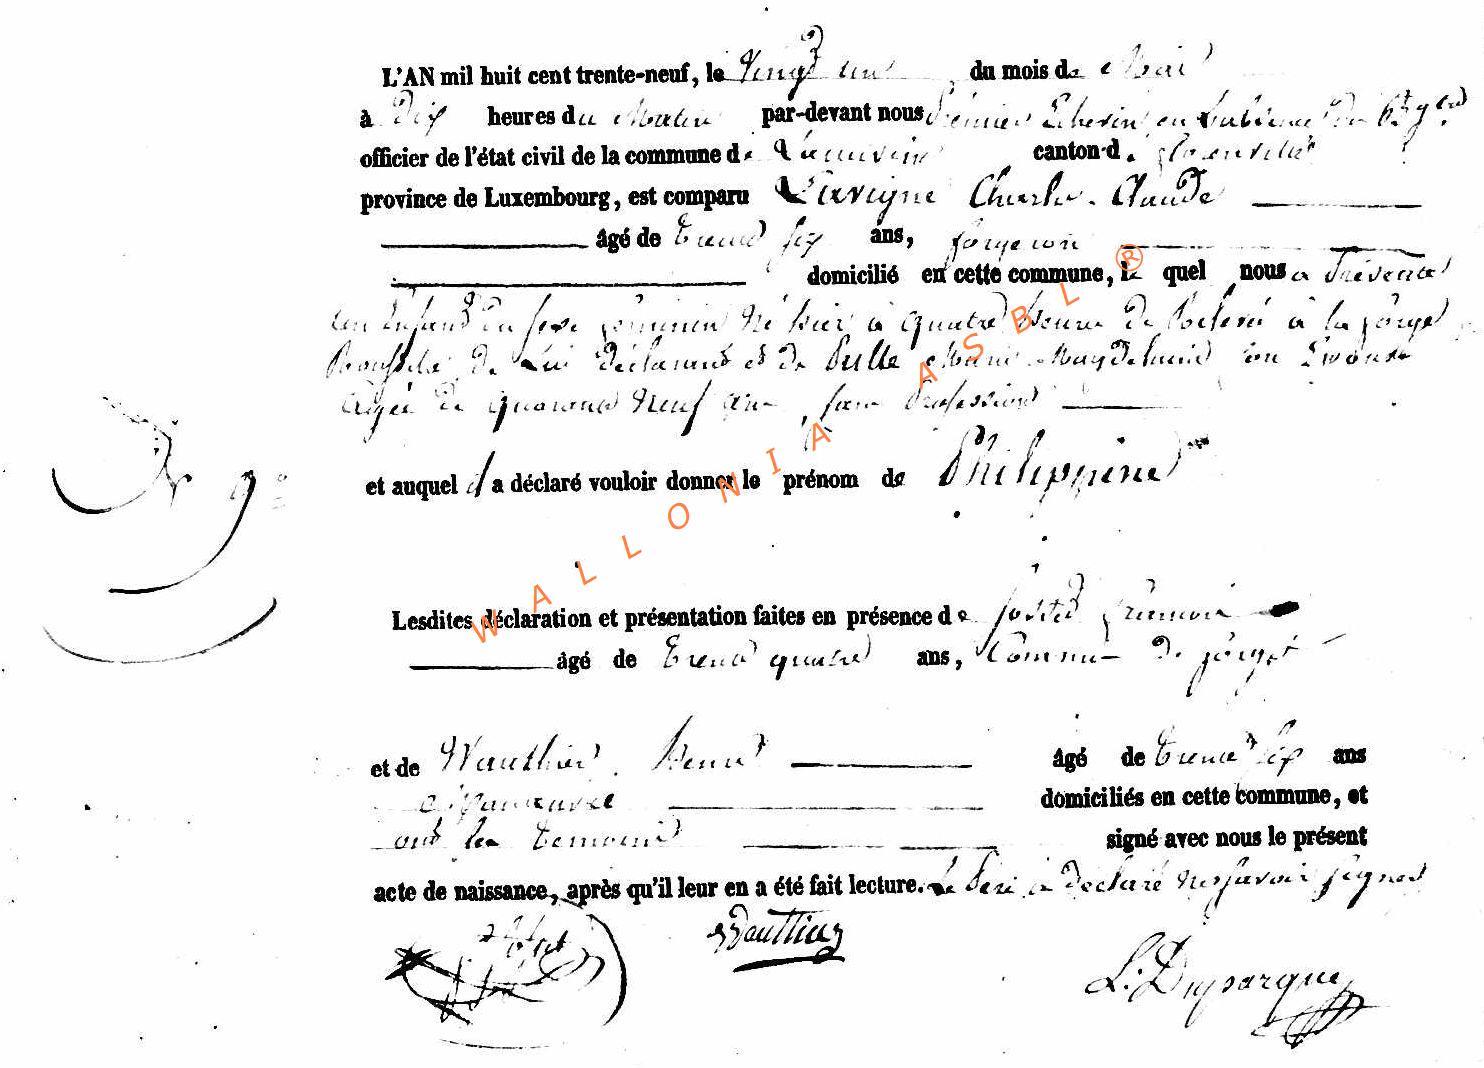 L'AN mil huit cent trente-neuf, le vingt un du mois de Mai
à Dix heures du Matin par-devant nous Premier Echevin en l'absence du
officier de l'état civil de la commune de canton d. florenville
province de Luxembourg, est comparu Lavigne Charles Claude
âgé de trente six ans, forgeron
domicilié en cette commune, le quel nous a présenté
un Enfant du sexe féminin Né hier à quatre heures de Relevé à la forge
de Lui déclarant et de Pulle Marie Magdelaine son Epouse
Agée de quarante Neuf ans, sans Profession
et auquel il a déclaré vouloir donner le prénom de Philippine
N° 9
Lesdites déclaration et présentation faites en présence de
âgé de trente quatre ans, Commis de forges
et de Wauthier Henri âgé de trente six ans
domiciliés en cette commune, et
ont les temoins signé avec nous le présent
acte de naissance, après qu'il leur en a été fait lecture. Le Père a déclaré ne savoir signer
Wauthier
L. Duparque
WALLONIA ASBL ®